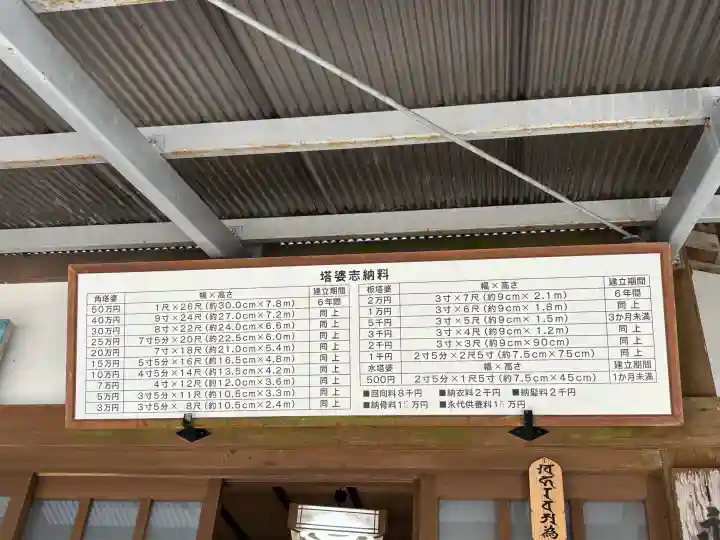 塔婆志納料
角塔婆 幅×高さ 建立期間
50万円 1尺×26尺(約30.0cm×7.8m) 6年間
40万円 9寸×24尺(約27.0cm×7.2m) 同上
30万円 8寸×22尺(約24.0cm×6.6m) 同上
25万円 7寸5分×20尺(約22.5cm×6.0m) 同上
20万円 7寸×18尺(約21.0cm×5.4m) 同上
15万円 5寸5分×16尺(約16.5cm×4.8m) 同上
10万円 4寸5分×14尺(約13.5cm×4.2m) 同上
7万円 4寸×12尺(約12.0cm×3.6m) 同上
5万円 3寸5分×11尺(約10.5cm×3.3m) 同上
3万円 3寸5分× 8尺(約10.5cm×2.4m) 同上
板塔婆 幅×高さ 建立期間
2万円 3寸×7尺(約9cm× 2.1m) 6年間
1万円 3寸×6尺(約9cm× 1.8m) 同上
5千円 3寸×5尺(約9cm× 1.5m) 3か月未満
3千円 3寸×4尺(約9cm× 1.2m) 同上
2千円 3寸×3尺(約9cm×90cm) 同上
1千円 2寸5分×2尺5寸(約7.5cm×75cm) 同上
水塔婆 幅×高さ 建立期間
500円 2寸5分×1尺5寸(約7.5cm×45cm) 1か月未満
■回向料8千円 ■納衣料2千円 ■納髪料2千円
■納骨料15万円 ■永代供養料15万円
為